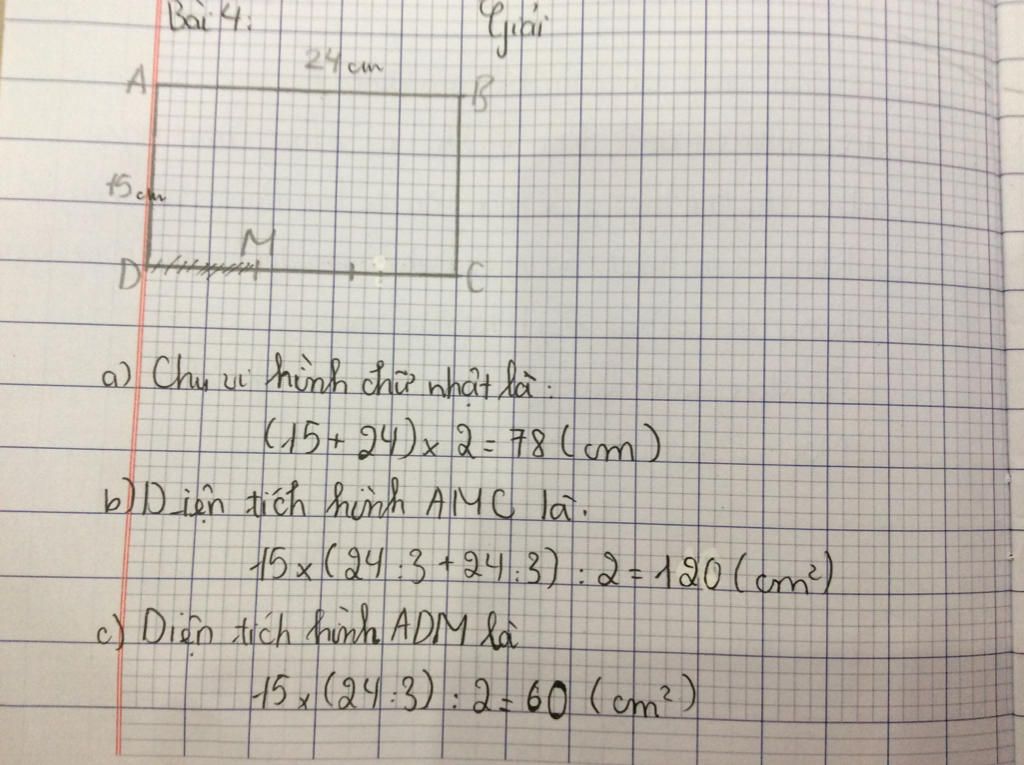 Bài 4: Giải
24 cm
A B
15 cm
M
D C
a) Chu vi hình chữ nhật là:
(15 + 24) x 2 = 78 (cm)
b) Diện tích hình AMC là.
15 x (24 : 3 + 24 : 3) : 2 = 120 (cm²)
c) Diện tích hình ADM là
15 x (24 : 3) : 2 = 60 (cm²)